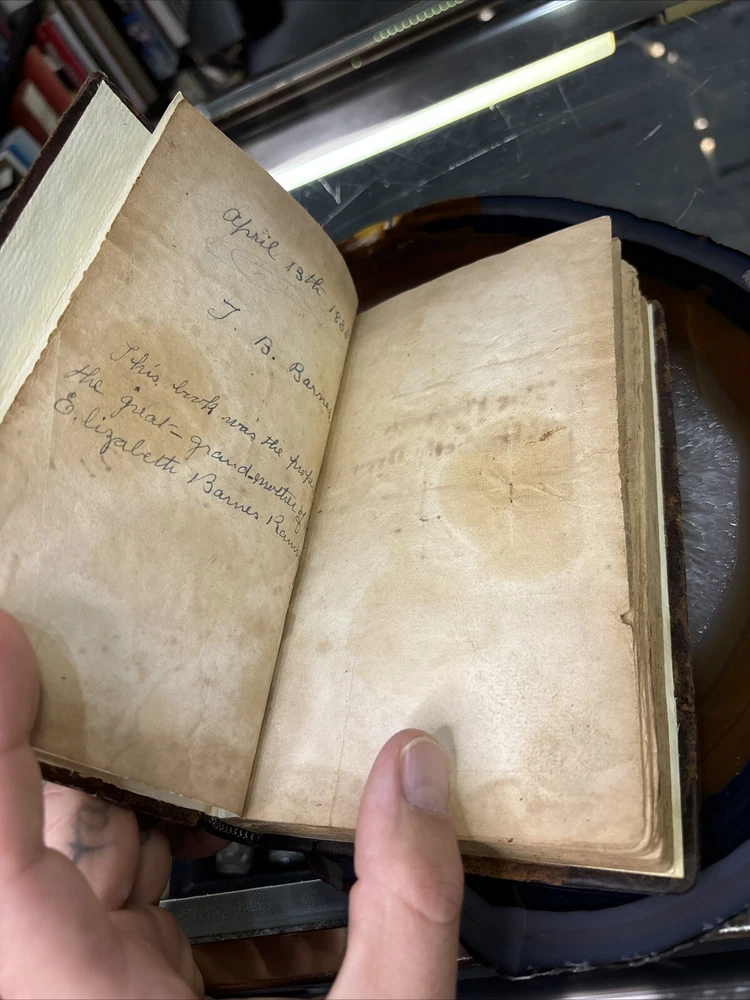 April 13th 188
T. B. Barnes
This book was the
the great-grandmother of
Elizabeth Barnes